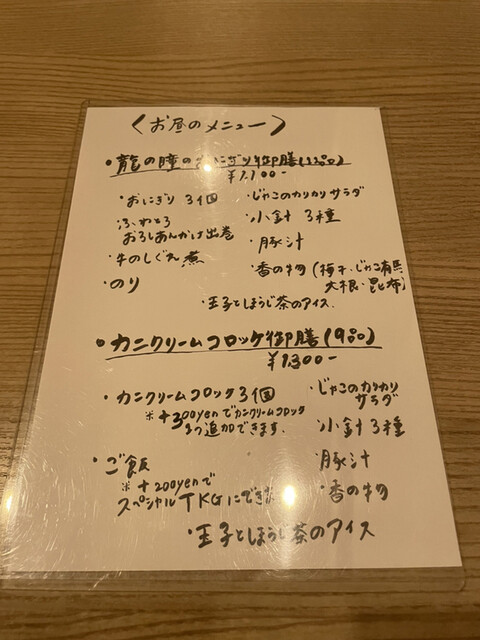 〈お昼のメニュー〉
・龍の瞳のおにぎり御膳(12品)
¥1,100-
・おにぎり 3個
・じゃこのカリカリサラダ
ふわとろ
おろしあんかけ出巻
・小鉢 3種
・豚汁
・牛のしぐれ煮
・香の物(梅干・じゃこ有馬
大根・昆布)
・のり
・玉子とほうじ茶のアイス
・カニクリームコロッケ御膳(9品)
¥1,300-
・カニクリームコロッケ 3個
※+300yenでカニクリームコロッケ
1つ追加できます。
・じゃこのカリカリ
サラダ
・小鉢 3種
・豚汁
・ご飯
※+200yenで
スペシャルTKGにできます
・香の物
・玉子とほうじ茶のアイス